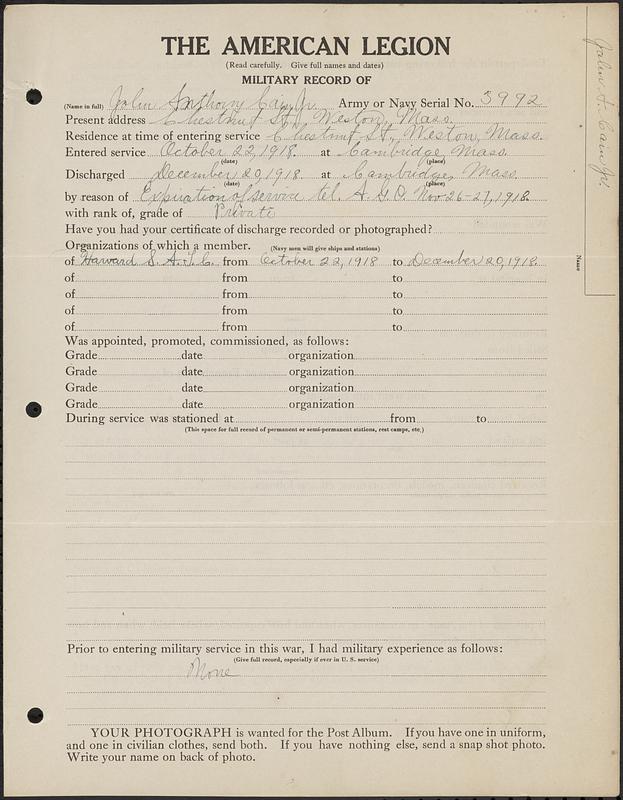 THE AMERICAN LEGION
(Read carefully. Give full names and dates)
MILITARY RECORD OF
(Name in full) John Anthony Cain, Jr. Army or Navy Serial No. 3992
Present address Chestnut St., Weston, Mass.
Residence at time of entering service Chestnut St., Weston, Mass.
Entered service October 22, 1918. at Cambridge, Mass.
(date) (place)
Discharged December 20, 1918 at Cambridge, Mass.
(date) (place)
by reason of Expiration of service tel. A.G.O. Nov. 26-27, 1918.
with rank of, grade of Private
Have you had your certificate of discharge recorded or photographed?
Organizations of which a member. (Navy men will give ships and stations)
of Harvard S.A.T.C. from October 22, 1918 to December 20, 1918.
of from to
of from to
of from to
of from to
Was appointed, promoted, commissioned, as follows:
Grade date organization
Grade date organization
Grade date organization
Grade date organization
During service was stationed at from to
(This space for full record of permanent or semi-permanent stations, rest camps, etc.)
Prior to entering military service in this war, I had military experience as follows:
(Give full record, especially if ever in U. S. service)
None
YOUR PHOTOGRAPH is wanted for the Post Album. If you have one in uniform,
and one in civilian clothes, send both. If you have nothing else, send a snap shot photo.
Write your name on back of photo.
Name
John A. Cain, Jr.